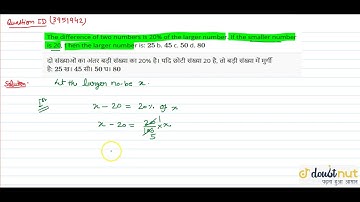 Question ID (3951942)
The difference of two numbers is 20% of the larger number, if the smaller number
is 20, then the larger number is: 25 b. 45 c. 50 d. 80
दो संख्याओं का अंतर बड़ी संख्या का 20% है। यदि छोटी संख्या 20 है, तो बड़ी संख्या में मुर्गी
है: 25 ख। 45 सी। 50 घ। 80
Solution: let the larger no. be x.
x - 20 = 20% of x
x - 20 = 20 1 x x
100
5
doubtnut
पढ़ना हुआ आसान